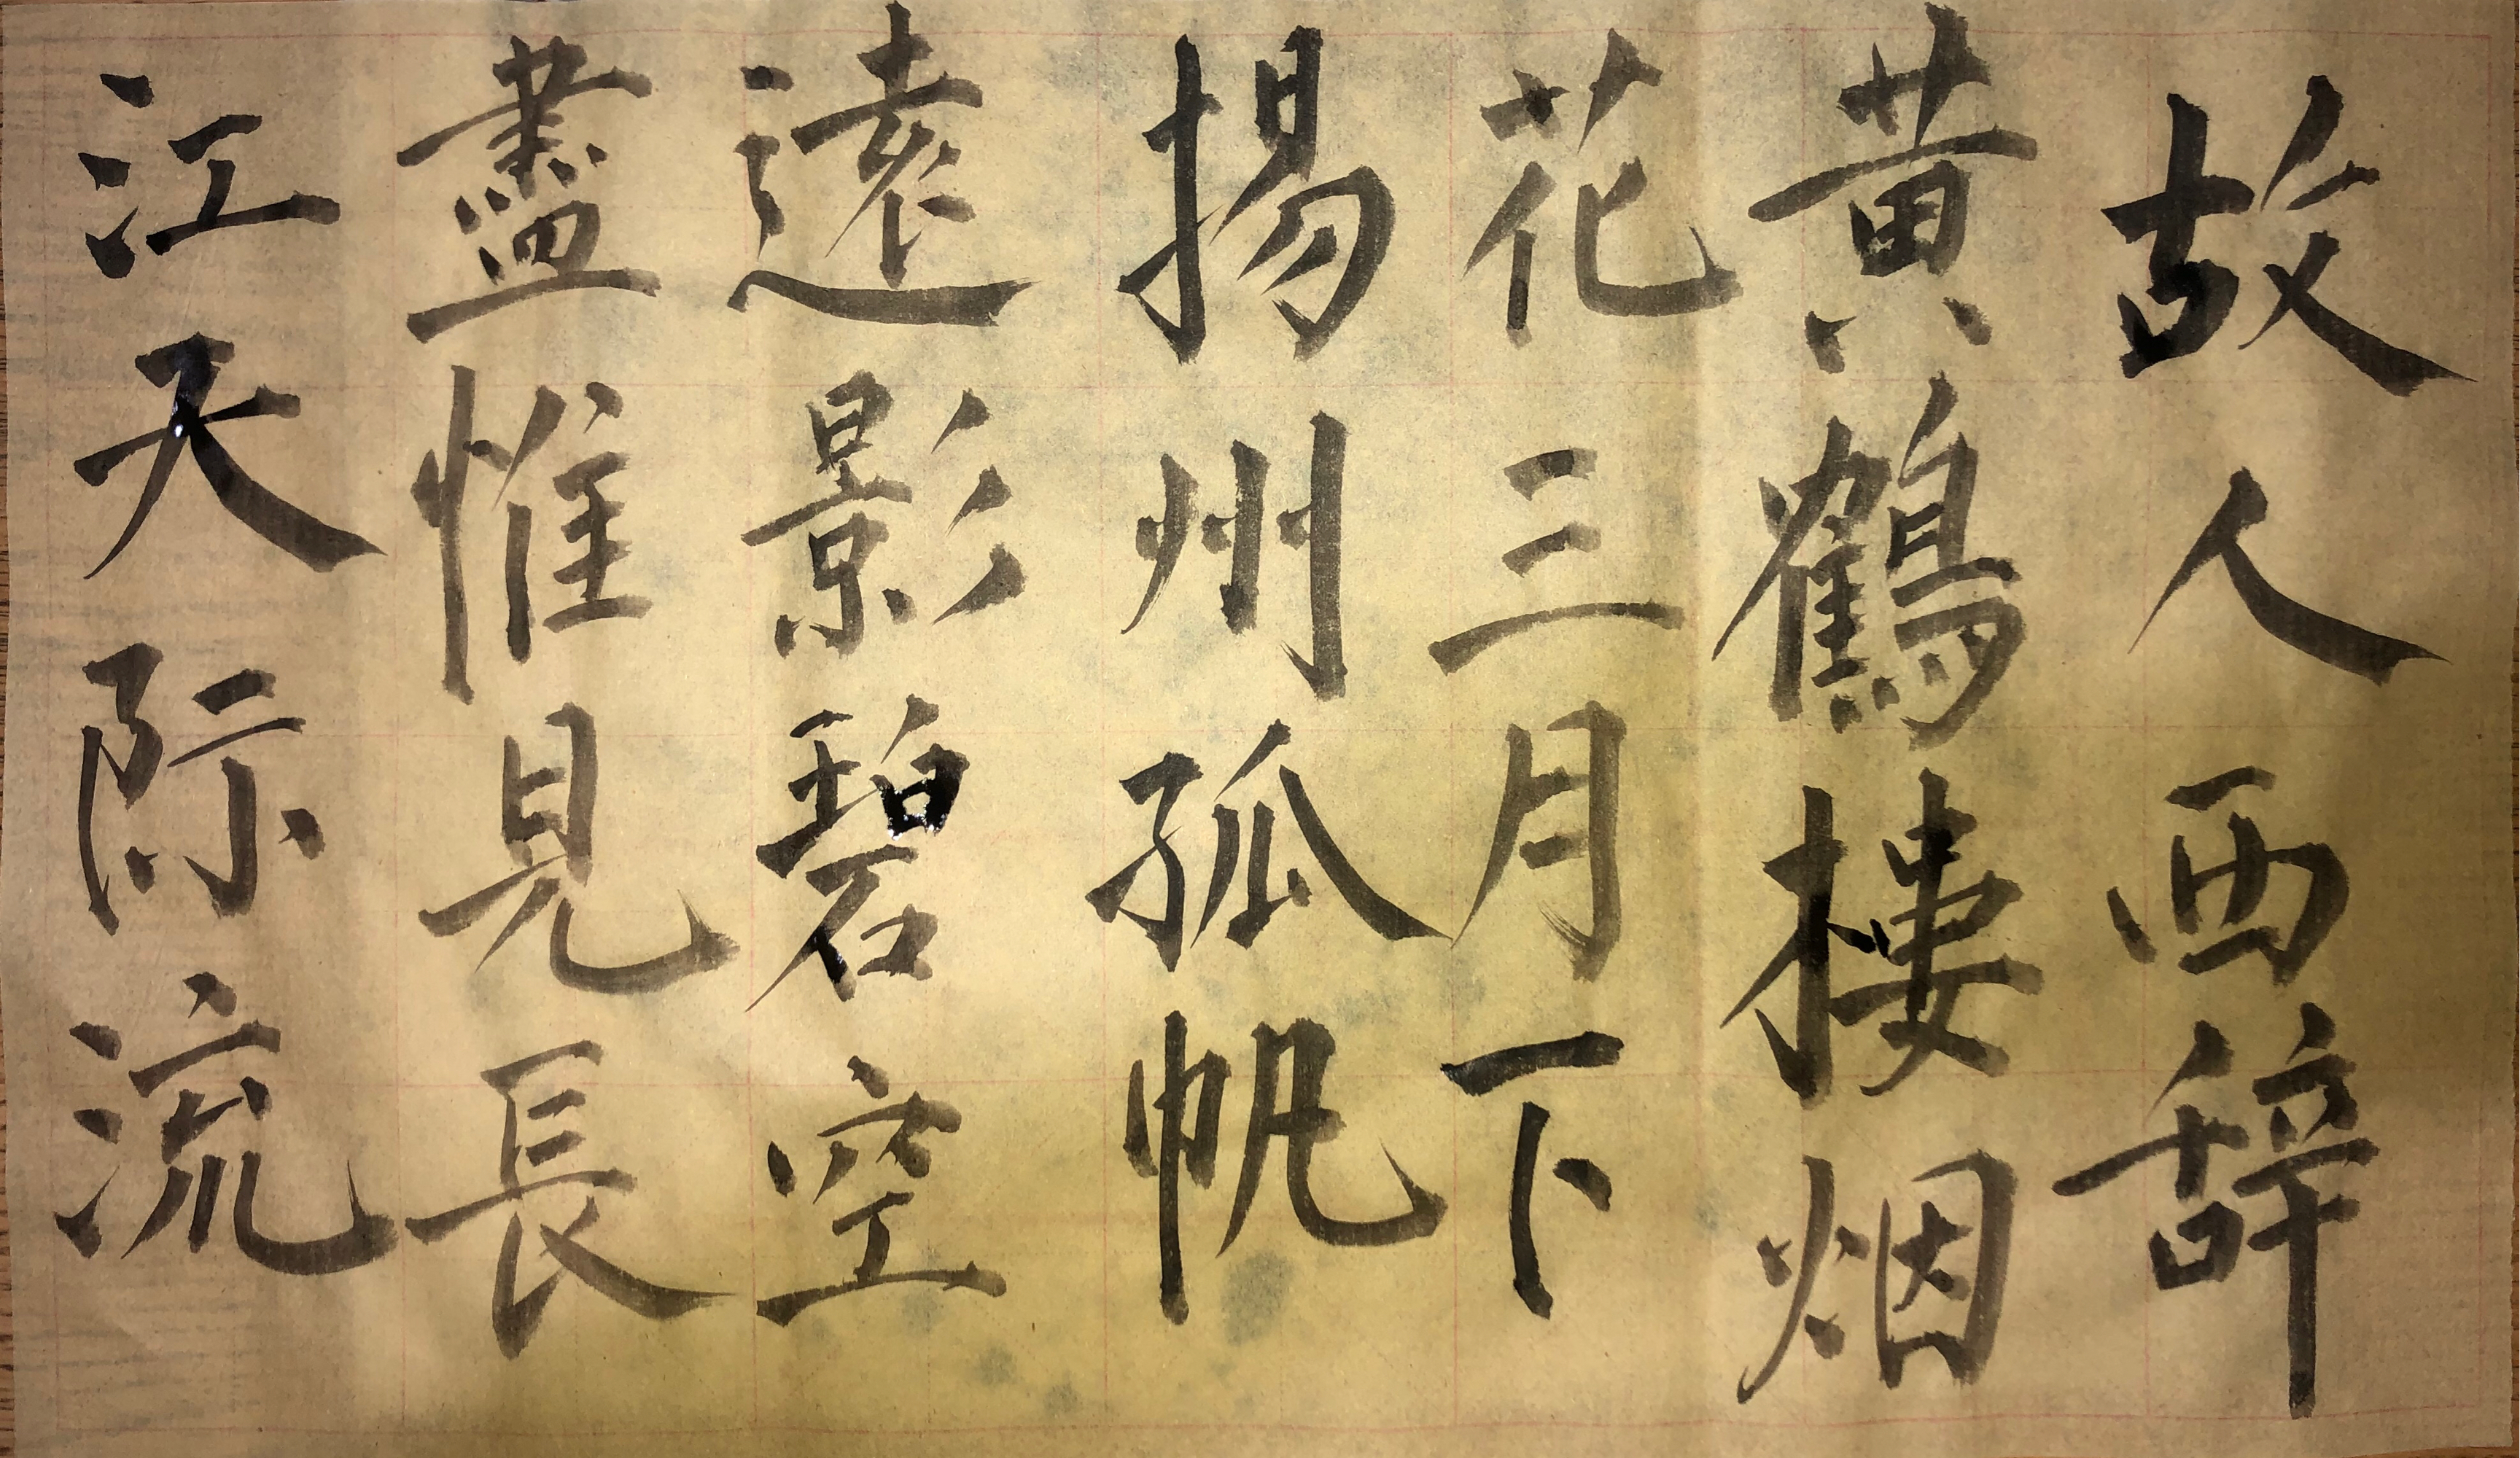 故人西辞
黄鶴楼烟
花三月下
揚州孤帆
遠影碧空
盡惟見長
江天际流